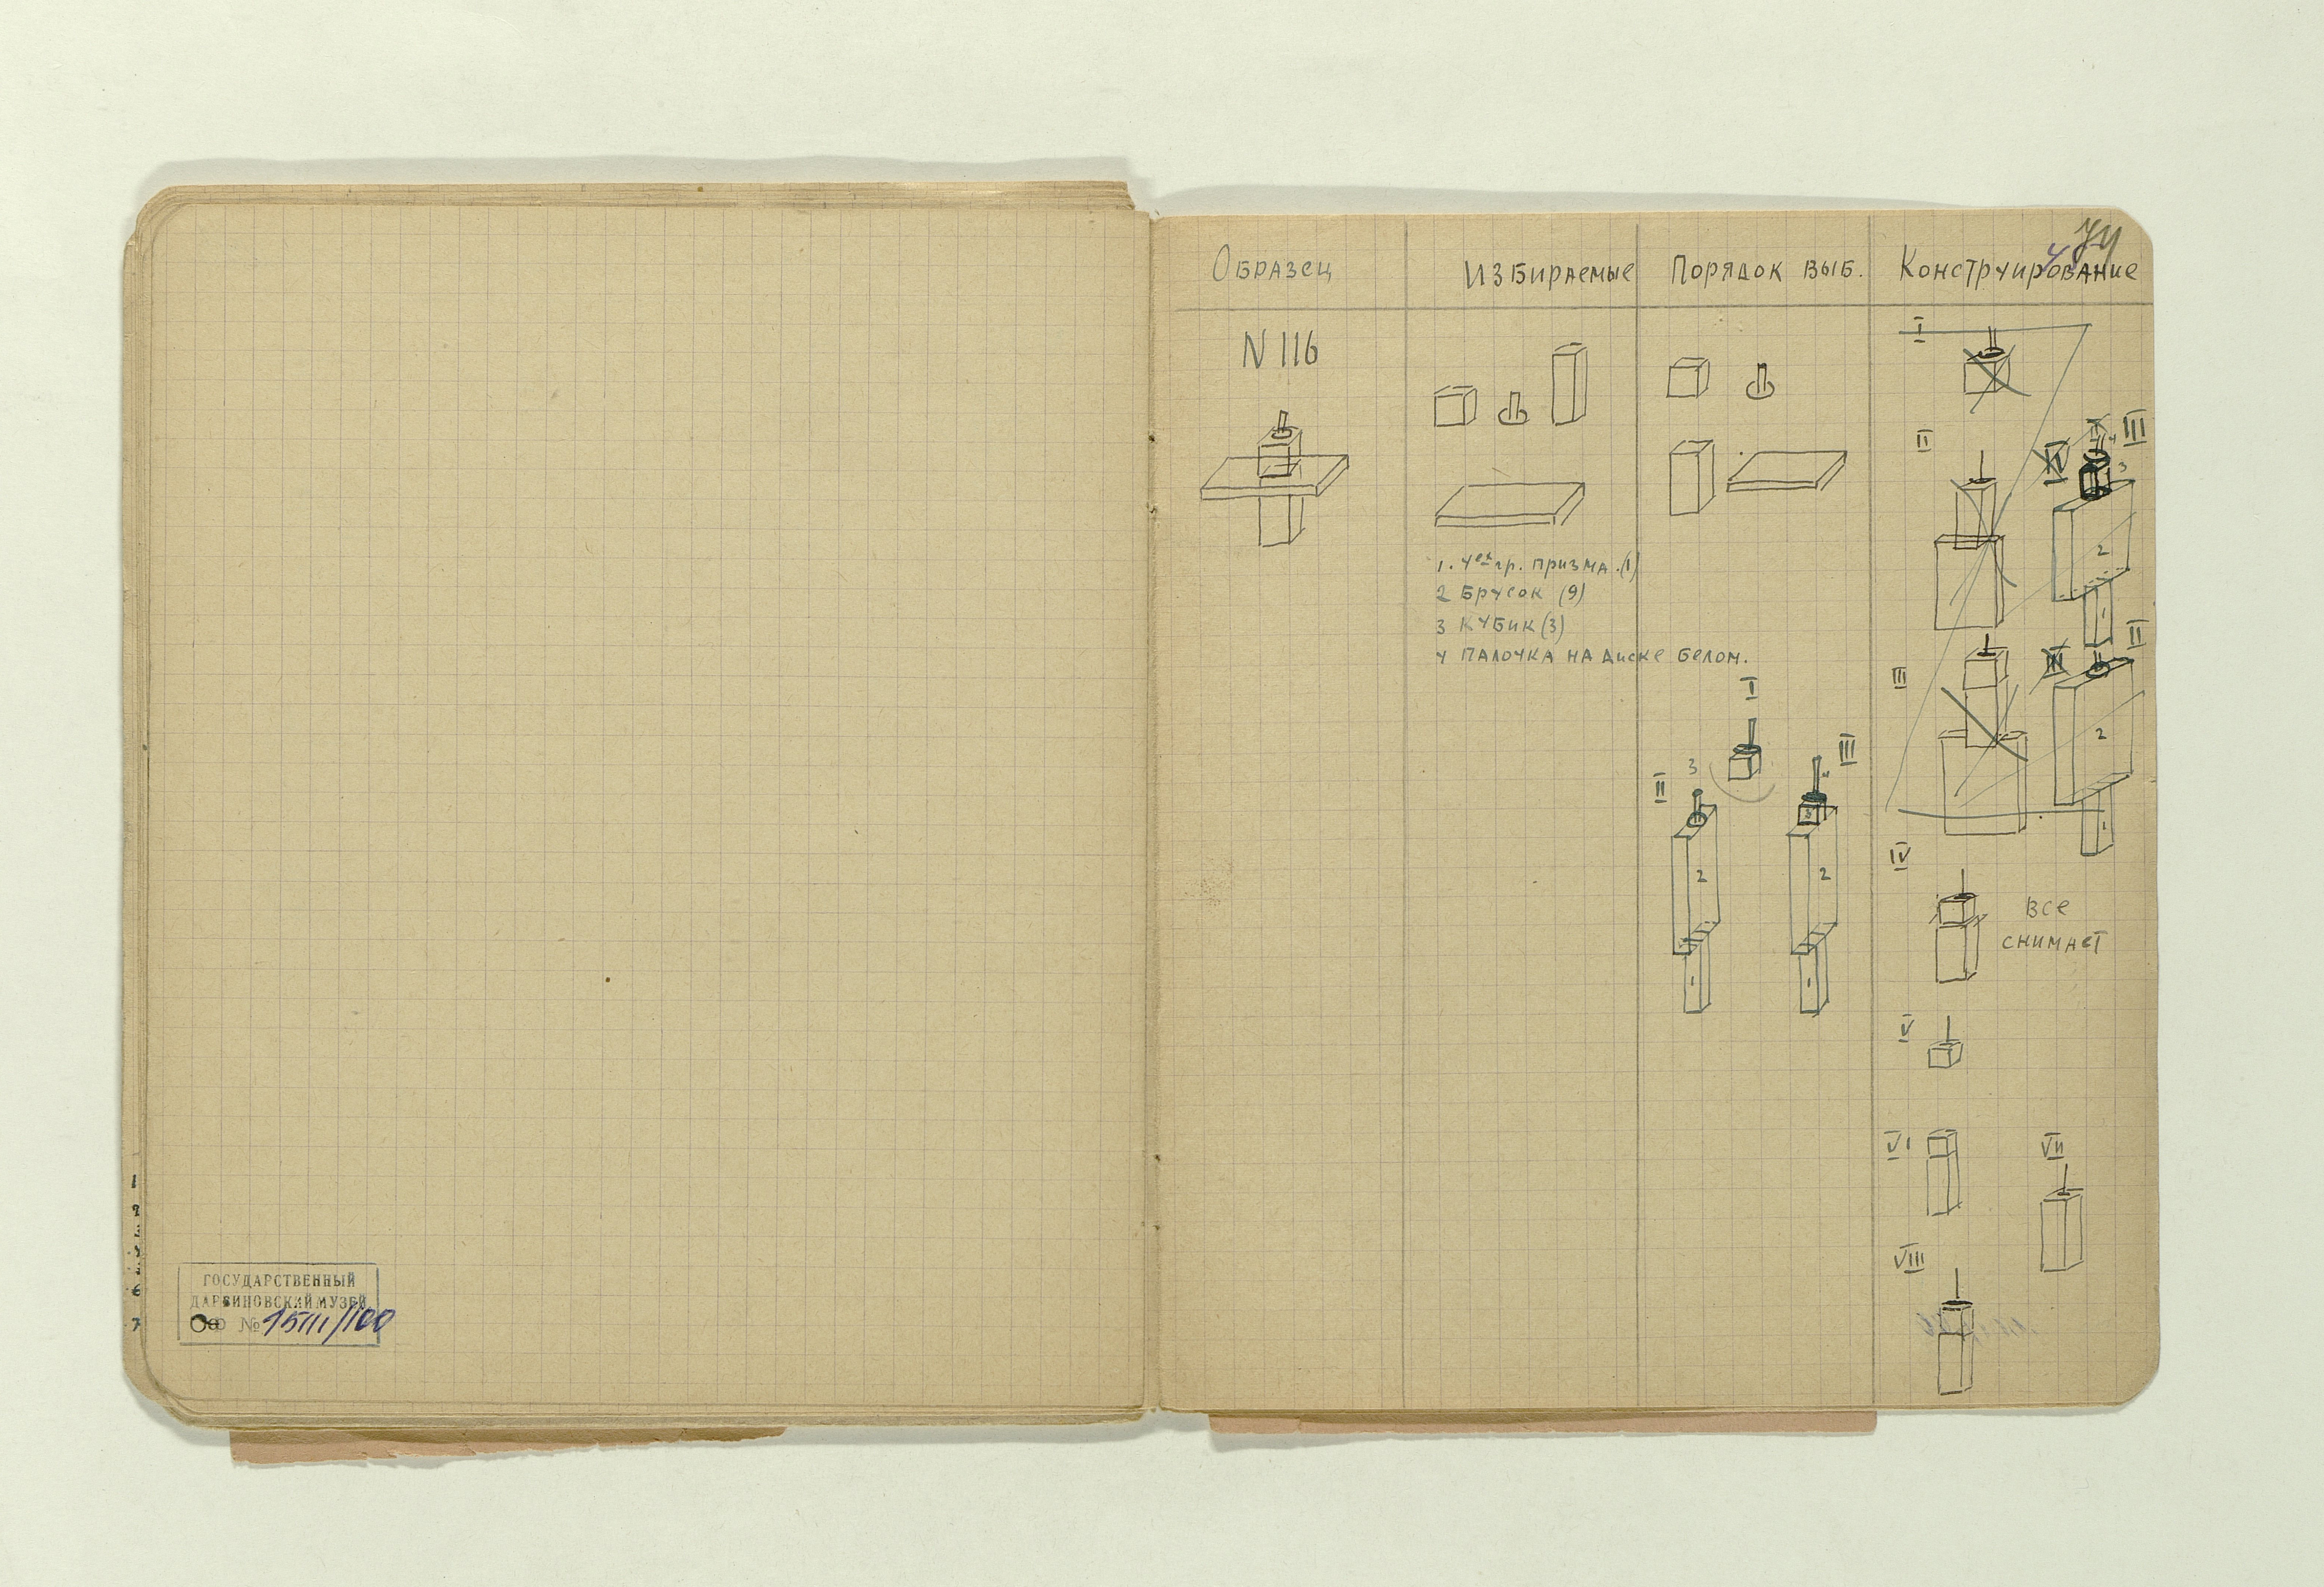 ГОСУДАРСТВЕННЫЙ
ДАРВИНОВСКИЙ МУЗЕЙ
ОФ № 15111/100
Образец Избираемые Порядок выб. Конструирование
N 116
1. 4ех гр. призма. (1)
2 Брусок (9)
3 Кубик (3)
4 палочка на диске белом.
I
II
3
III
2
2
3
1
1
I
II
III
3
2
1
II
III
2
1
IV
все
снимает
V
VI
VII
VIII